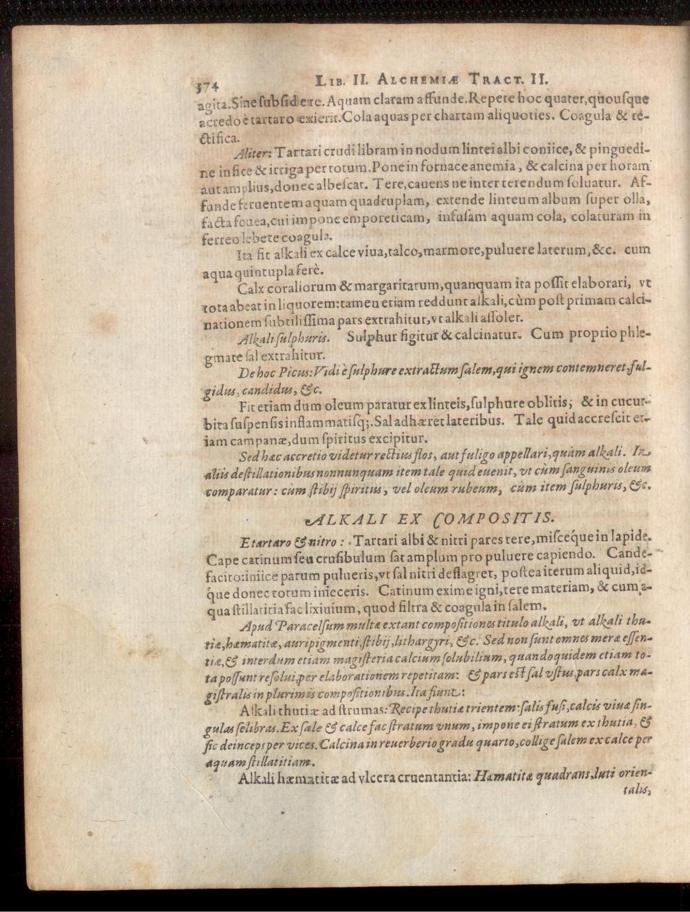 374 LIB. II. ALCHEMIÆ TRACT. II.
agita. Sine subsidere. Aquam claram affunde. Repete hoc quater, quousque
acredo è tartaro exierit. Cola aquas per chartam aliquoties. Coagula & re-
ctifica.
Aliter: Tartari crudi libram in nodum lintei albi coniice, & pinguedi-
ne infice & irriga per totum. Pone in fornace anemia, & calcina per horam
aut amplius, donec albescat. Tere, cauens ne inter terendum soluatur. Af-
funde feruentem aquam quadruplam, extende linteum album super olla,
facta fouea, cui impone emporeticam, infusam aquam cola, colaturam in
ferreo lebete coagula.
Ita fit alkali ex calce viua, talco, marmore, puluere laterum, &c. cum
aqua quintupla ferè.
Calx coraliorum & margaritarum, quanquam ita possit elaborari, vt
tota abeat in liquorem: tamen etiam reddunt alkali, cùm post primam calci-
nationem subtilissima pars extrahitur, vt alkali assolet.
Alkali sulphuris. Sulphur figitur & calcinatur. Cum proprio phle-
gmate sal extrahitur.
De hoc Picus: Vidi è sulphure extractum salem, qui ignem contemneret, ful-
gidus, candidus, &c.
Fit etiam dum oleum paratur ex linteis, sulphure oblitis; & in cucur-
bita suspensis inflammatisq;. Sal adhæret lateribus. Tale quid accrescit et-
iam campanæ, dum spiritus excipitur.
Sed hæc accretio videtur rectius flos, aut fuligo appellari, quàm alkali. In
aliis destillationibus nonnunquam item tale quid euenit, vt cùm sanguinis oleum
comparatur: cùm stibij spiritus, vel oleum rubeum, cùm item sulphuris, &c.
ALKALI EX COMPOSITIS.
E tartaro & nitro: Tartari albi & nitri pares tere, misceque in lapide.
Cape catinum seu crusibulum sat amplum pro puluere capiendo. Cande-
facito: iniice parum pulueris, vt sal nitri deflagret, postea iterum aliquid, id-
que donec totum inieceris. Catinum exime igni, tere materiam, & cum a-
qua stillatitia fac lixiuium, quod filtra & coagula in salem.
Apud Paracelsum multæ extant compositiones titulo alkali, vt alkali thu-
tiæ, hæmatitæ, auripigmenti, stibij, lithargyri, &c. Sed non sunt omnes meræ essen-
tiæ, & interdum etiam magisteria calcium solubilium, quandoquidem etiam to-
ta possunt resolui, per elaborationem repetitam: & pars est sal vstus, pars calx ma-
gistralis in plurimis compositionibus. Ita fiunt:
Alkali thutiæ ad strumas: Recipe thutiæ trientem: salis fusi, calcis viuæ sin-
gulas selibras. Ex sale & calce fac stratum vnum, impone ei stratum ex thutia, &
sic deinceps per vices. Calcina in reuerberio gradu quarto, collige salem ex calce per
aquam stillatitiam.
Alkali hæmatitæ ad vlcera cruentantia: Hæmatitæ quadrans, luti orien-
talis,